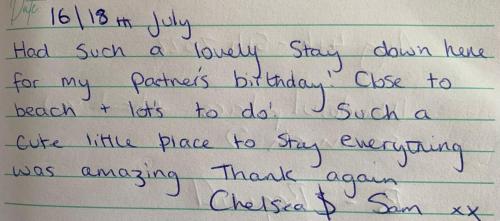 Date:
16/18th July
Had such a lovely stay down here
for my partner's birthday! Close to
beach + lot's to do! Such a
cute little place to stay everything
was amazing Thank again
Chelsea & Sam xx